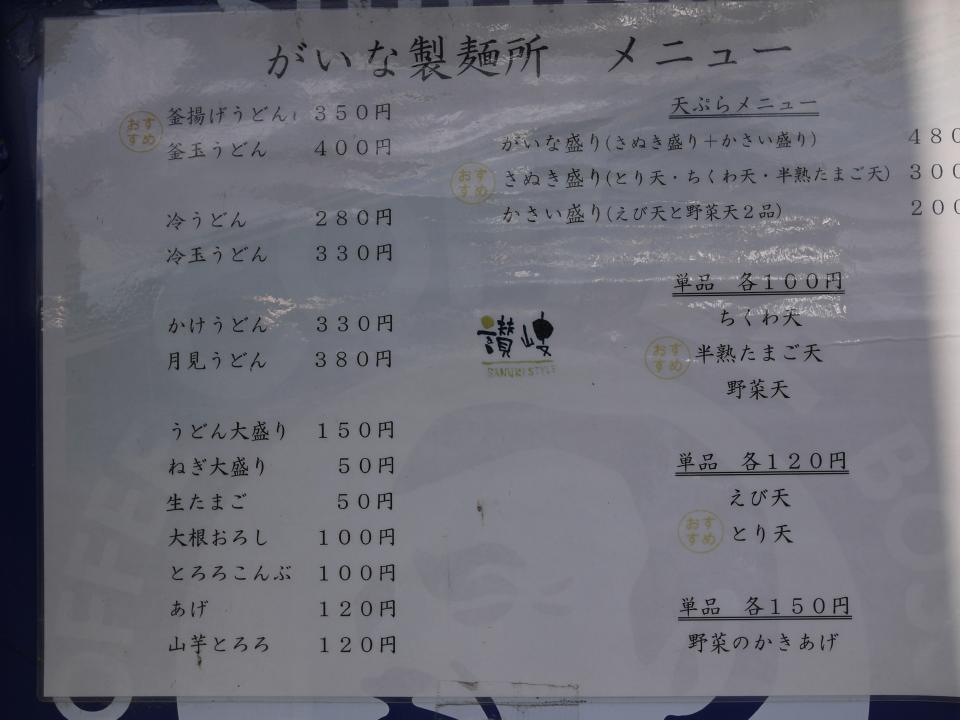 がいな製麺所　メニュー
おすすめ 釜揚げうどん 350円
釜玉うどん 400円
冷うどん 280円
冷玉うどん 330円
かけうどん 330円
月見うどん 380円
うどん大盛り 150円
ねぎ大盛り 50円
生たまご 50円
大根おろし 100円
とろろこんぶ 100円
あげ 120円
山芋とろろ 120円
讃岐
SANUKI STYLE
天ぷらメニュー
がいな盛り(さぬき盛り＋かさい盛り) 480
おすすめ さぬき盛り(とり天・ちくわ天・半熟たまご天) 300
かさい盛り(えび天と野菜天２品) 200
単品　各100円
ちくわ天
おすすめ 半熟たまご天
野菜天
単品　各120円
えび天
おすすめ とり天
単品　各150円
野菜のかきあげ
COFFEE
BOSS